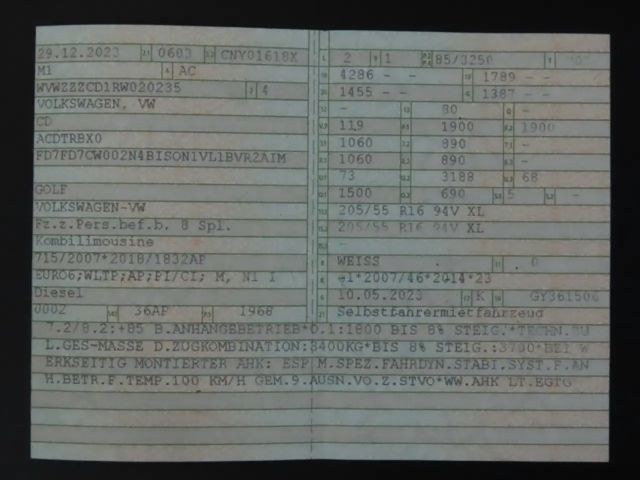 29.12.2023 2.1 0603 2.2 CNY01618X
M1 4 AC
WVWZZZCD1RW020235 3 4
VOLKSWAGEN, VW
CD
ACDTRBX0
FD7FD7CW002N4BISON1VL1BVR2AIM
GOLF
VOLKSWAGEN-VW
Fz.z.Pers.bef.b. 8 Spl.
Kombilimousine
715/2007*2018/1832AP
EURO6;WLTP;AP;PI/CI; M, N1 I
Diesel
0002 36AP 1968
L 2 9 1 85/3250
4286 - - 1789 - -
1455 - - 1387 - -
- 80 -
119 1900 1900
1060 890 -
1060 890 -
73 3188 68
1500 690 5 -
205/55 R16 94V XL
205/55 R16 94V XL
-
WEISS 0
e1*2007/46*2014*23
10.05.2023 K GY361506
Selbstfahrermietfahrzeug
7.2/8.2:+85 B.ANHÄNGEBETRIEB*O.1:1800 BIS 8% STEIG.*TECHN.ZU
L.GES-MASSE D.ZUGKOMBINATION:3400KG*BIS 8% STEIG.:3700*BEI W
ERKSEITIG MONTIERTER AHK: ESP M.SPEZ.FAHRDYN.STABI.SYST.F.AN
H.BETR.F.TEMP.100 KM/H GEM.9.AUSN.VO.Z.STVO*WW.AHK LT.EGTG